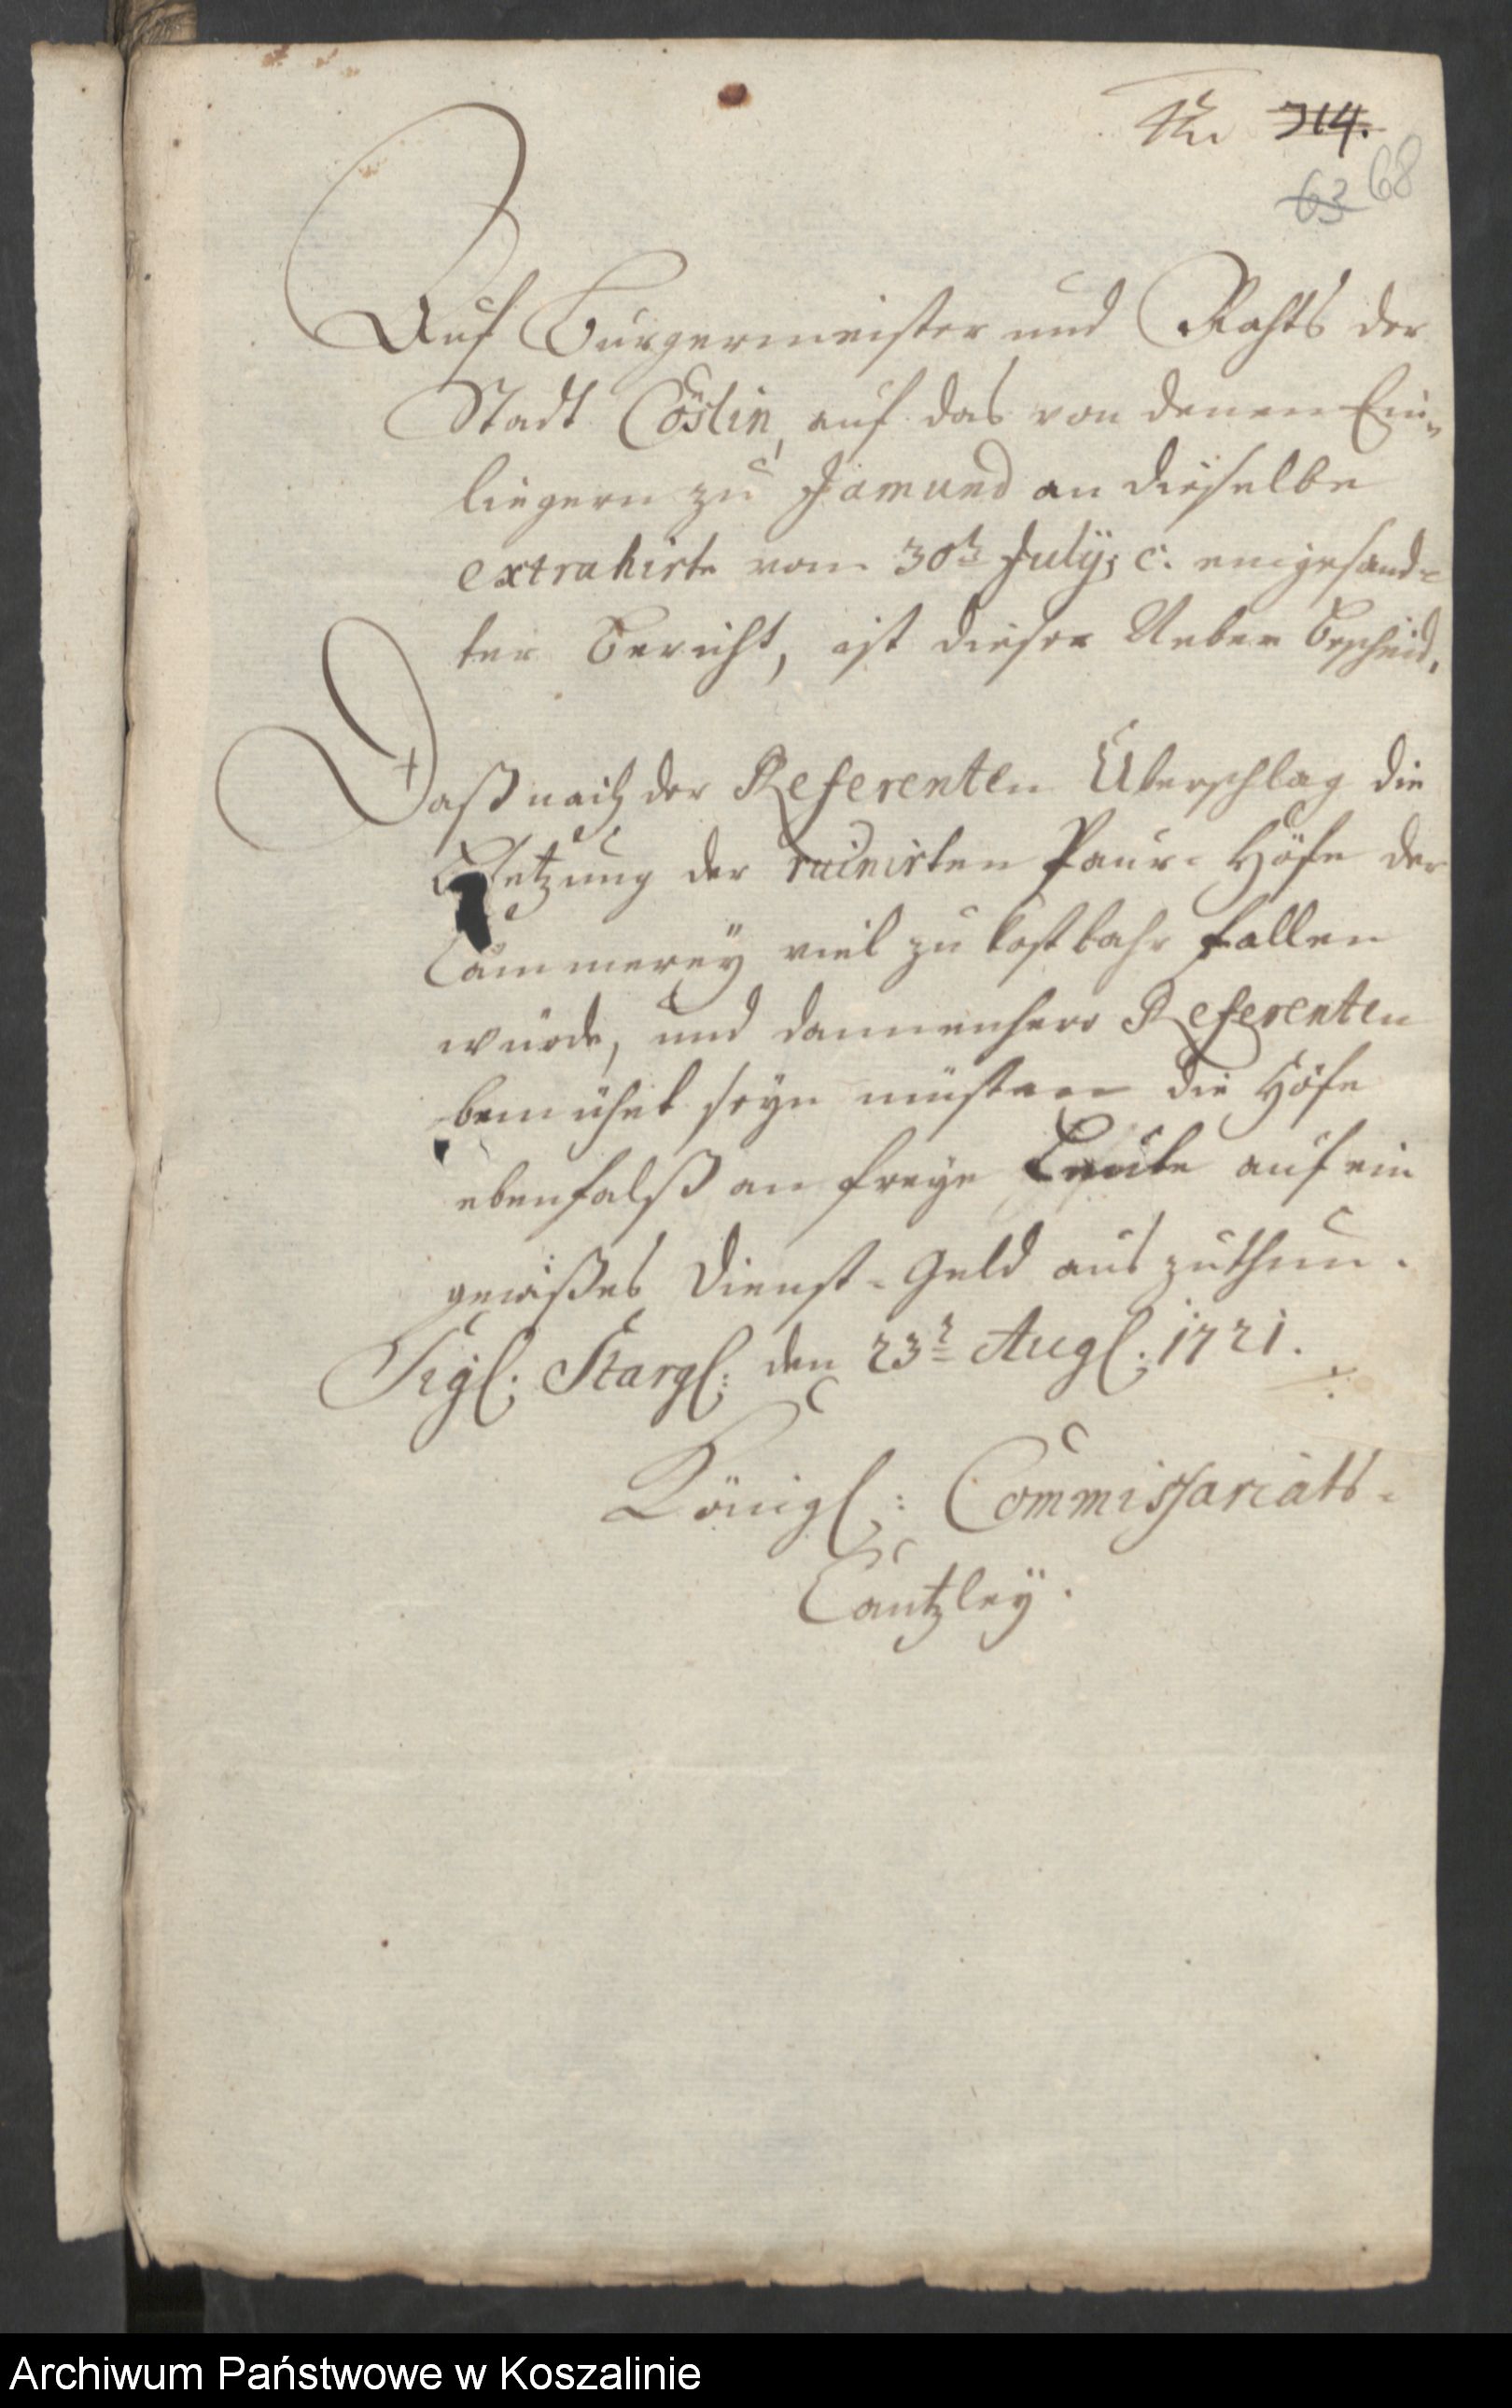 No 314.
63 68
Auf Burgermeister und Rahts der
Stadt Cöslin, auf das von denen Ein-
liegern zu Jamund an dieselbe
extrahirte vom 30t July; c. eingesand-
ter Bericht, ist dieser Neben Bescheid,
Daß nach der Referenten Überschlag die
Besetzung der ruinirten Paur-Höfe der
Cämmerey viel zu kostbahr fallen
würde, und dannenhero Referenten
bemühet seyn müsten die Höfe
ebenfalß an freye Leute auf ein
gewißes Dienst-Geld aus zuthun.
Sigl: Stargl: den 23t Augl: 1721.
Königl: Commissariats-
Cantzley.
Archiwum Państwowe w Koszalinie